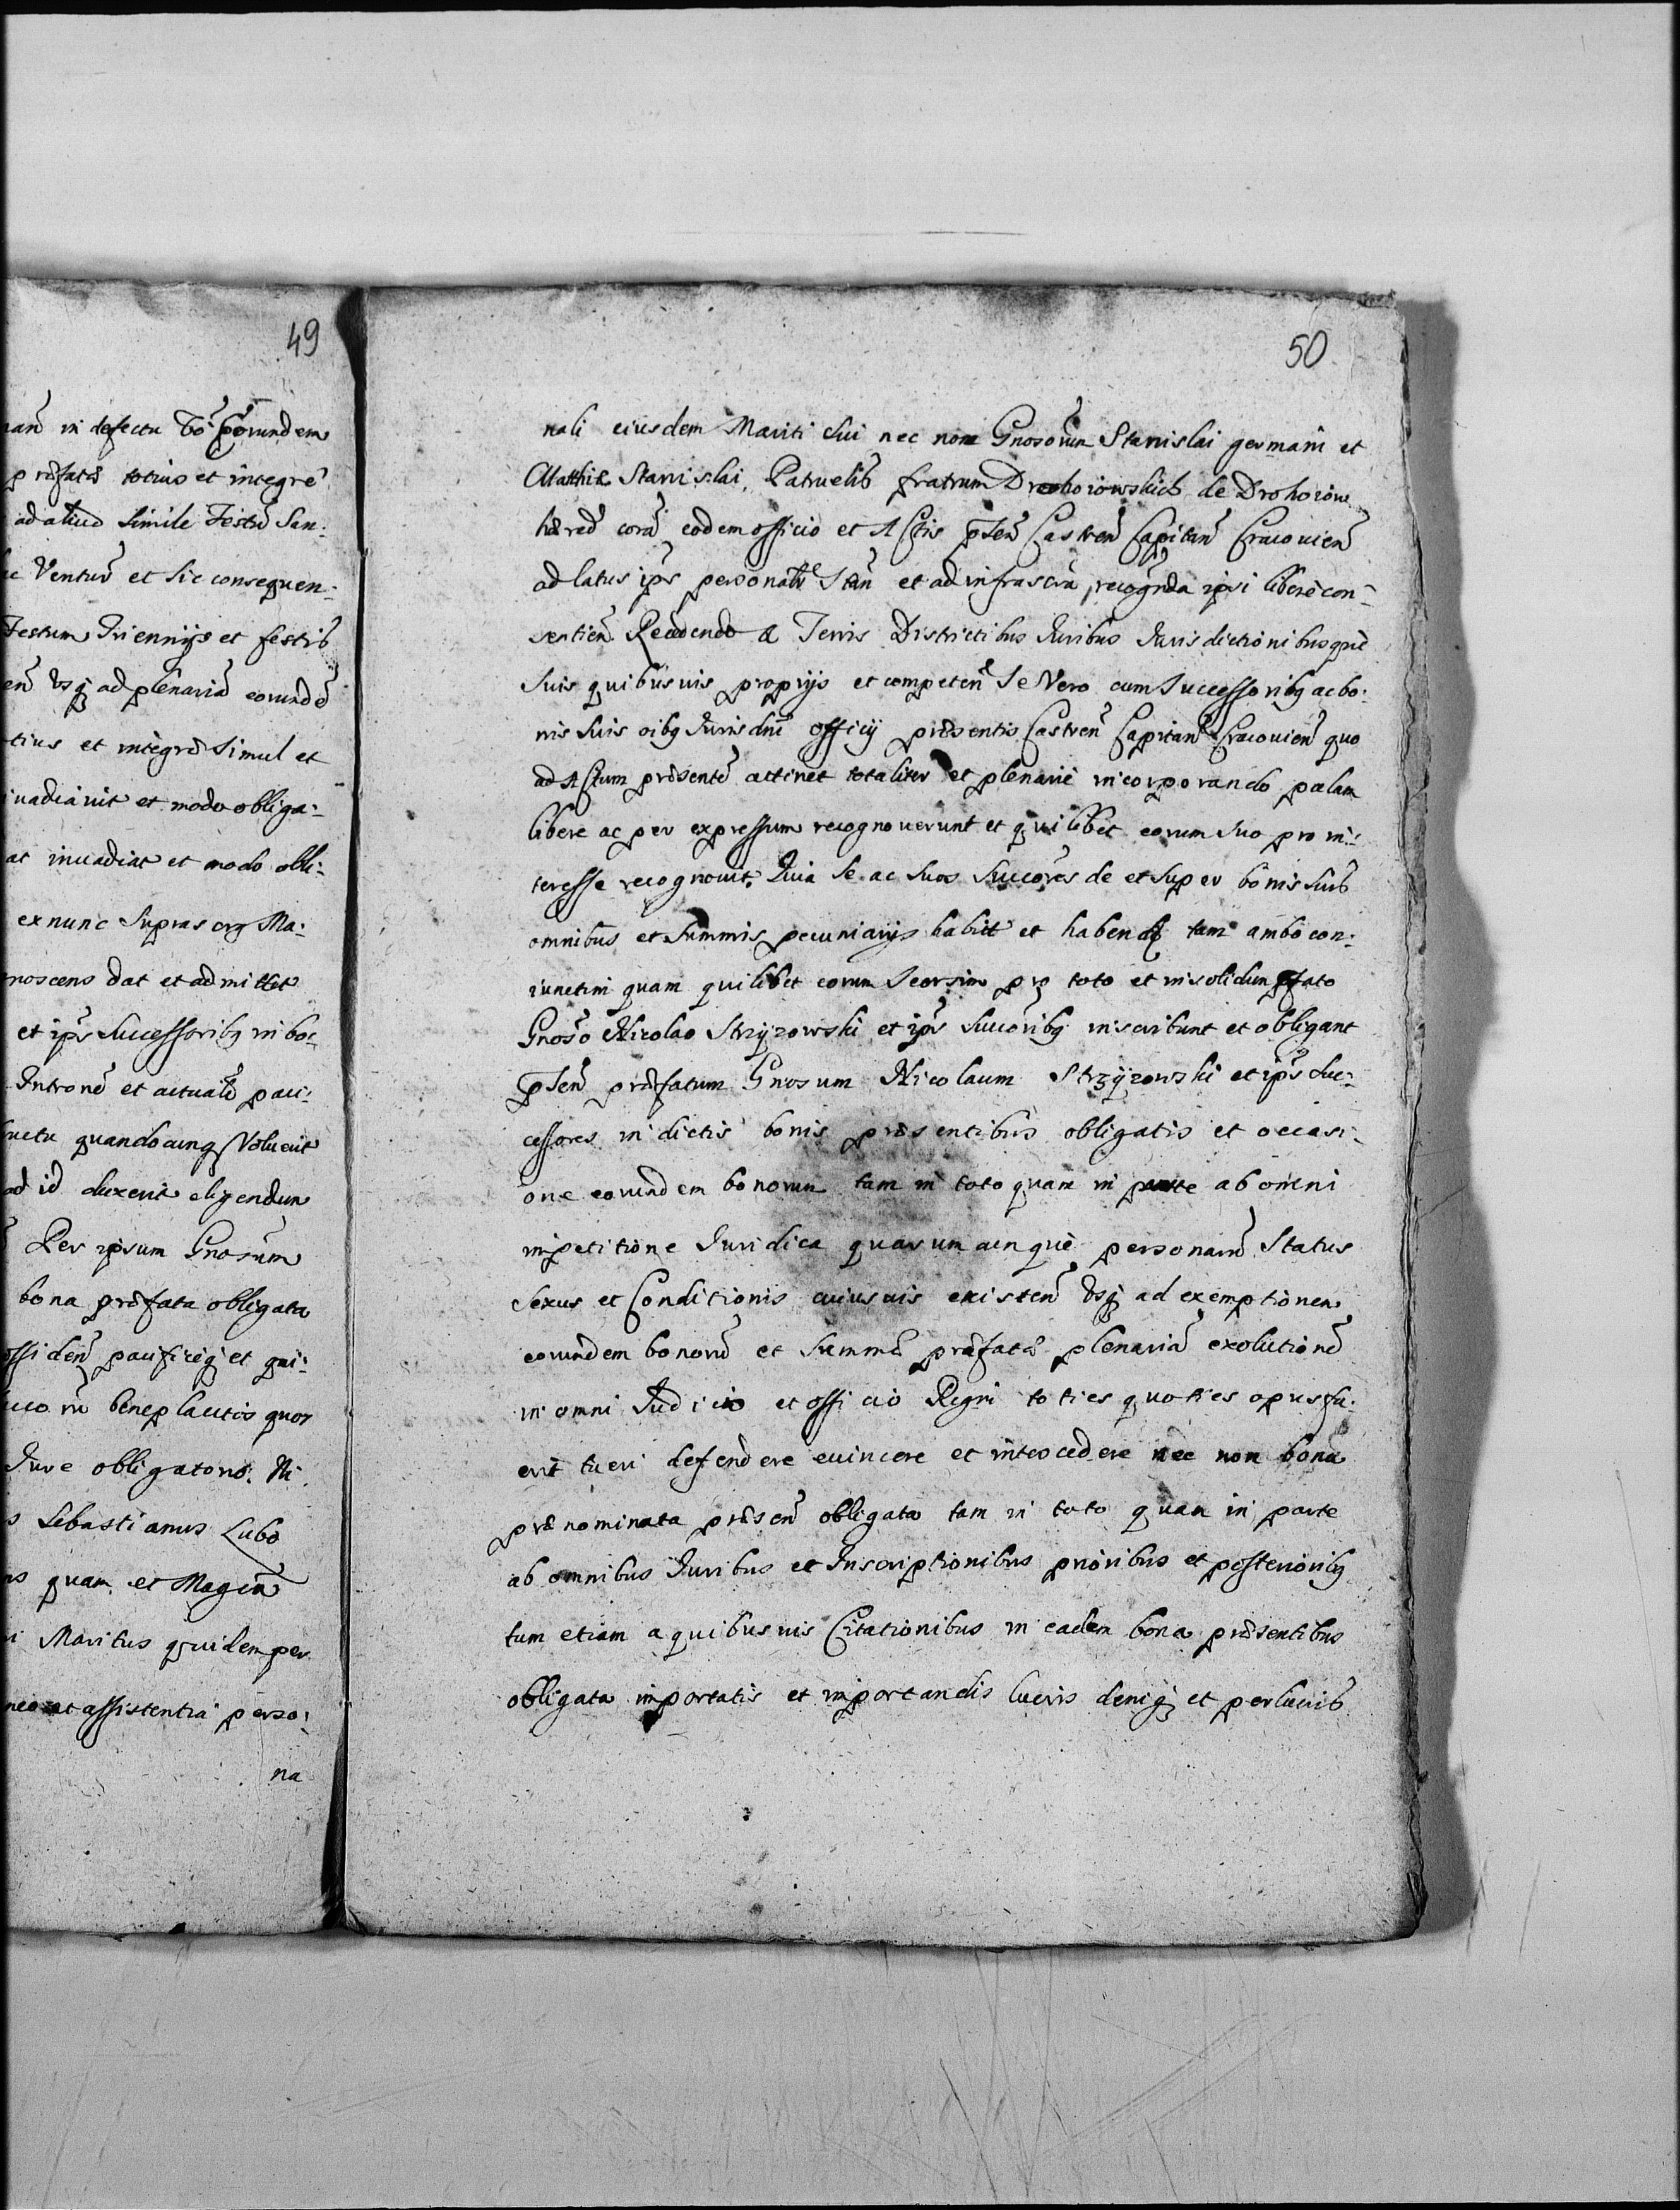 49
nam in defectu eorundem
præfatæ totius et integre
ad aliud simile Festū San:
Ventur̃ et sic consequen:
Festum Triennijs et festis
usq ad plenariā eorundē
tius et integræ simul et
invadiavit et modo obliga:
at invadiat et modo obli:
ex nunc suprascrꝫ Ma:
noscens dat et admittet
et ips̃ Successoribꝫ in bo:
Intronē et actualē paci:
quandocunqꝫ voluerit
ad id duxerit eligendum
Per ipsum Gnosum
bona præfata obligata
ossiden̄ pacificeqꝫ et qui:
beneplacitis quoꝫ
Jure obligatorio. Ni:
s Sebastianus Lubo
quam et Magcā
i Maritus quidem per
neo et assistentia perso:
na
50
nali eiusdem Mariti sui nec non Gnosorum Stanislai germani et
Matthiæ Stanislai, Patruelis fratrum Drohoiowskich de Drohoiow
hæred̄ corā eodem officio et Actis p̄sen̄ Castren̄ Capitan̄ Cracovien̄
ad latus ips̃ personalr̄ Stan̄ et ad infrascra recognda ipsi libere con:
sentien̄ Recedendo a Terris Districtibus Juribus Jurisdictionibusque
suis quibusvis proprijs et competen̄ Se Vero cum Successoribꝫ ac bo:
nis suis oibꝫ Jurisdni officij præsentis Castren̄ Capitan̄ Cracovien̄ quo
ad Actum præsentē attinet totaliter et plenarie incorporando palam
libere ac per expressum recognoverunt et quilibet eorum suo pro in:
teresse recognovit, Quia Se ac suos Succores de et super bonis suis
omnibus et summis pecuniarijs habit et habend tam ambo con:
iunctim quam quilibet eorum seorsim pro toto et insolidum p̄fato
Gnoso Nicolao Strzyzowski et ips̃ Succoribꝫ inscribunt et obligant
p̄sen̄ præfatum Gnosum Nicolaum Strzyzowski et ips̃ Suc:
cessores in dictis bonis præsentibus obligatis et occasi:
one eorundem bonorum tam in toto quam in parte ab omni
impetitione Juridica quarumcunque personarū Status
Sexus et Conditionis cuiusvis existen̄ usqꝫ ad exemptionem
eorundem bonorū et summæ præfatæ plenariā exolutionē
in omni Judicio et officio Regni toties quoties opus fu:
erit tueri defendere evincere et intercedere nec non bona
prænominata præsen̄ obligata tam in toto quam in parte
ab omnibus Juribus et Inscriptionibus prioribus et posterioribꝫ
tum etiam a quibusvis Citationibus in eadem bona præsentibus
obligata importatis et importandis lucris deniqꝫ et perlucris